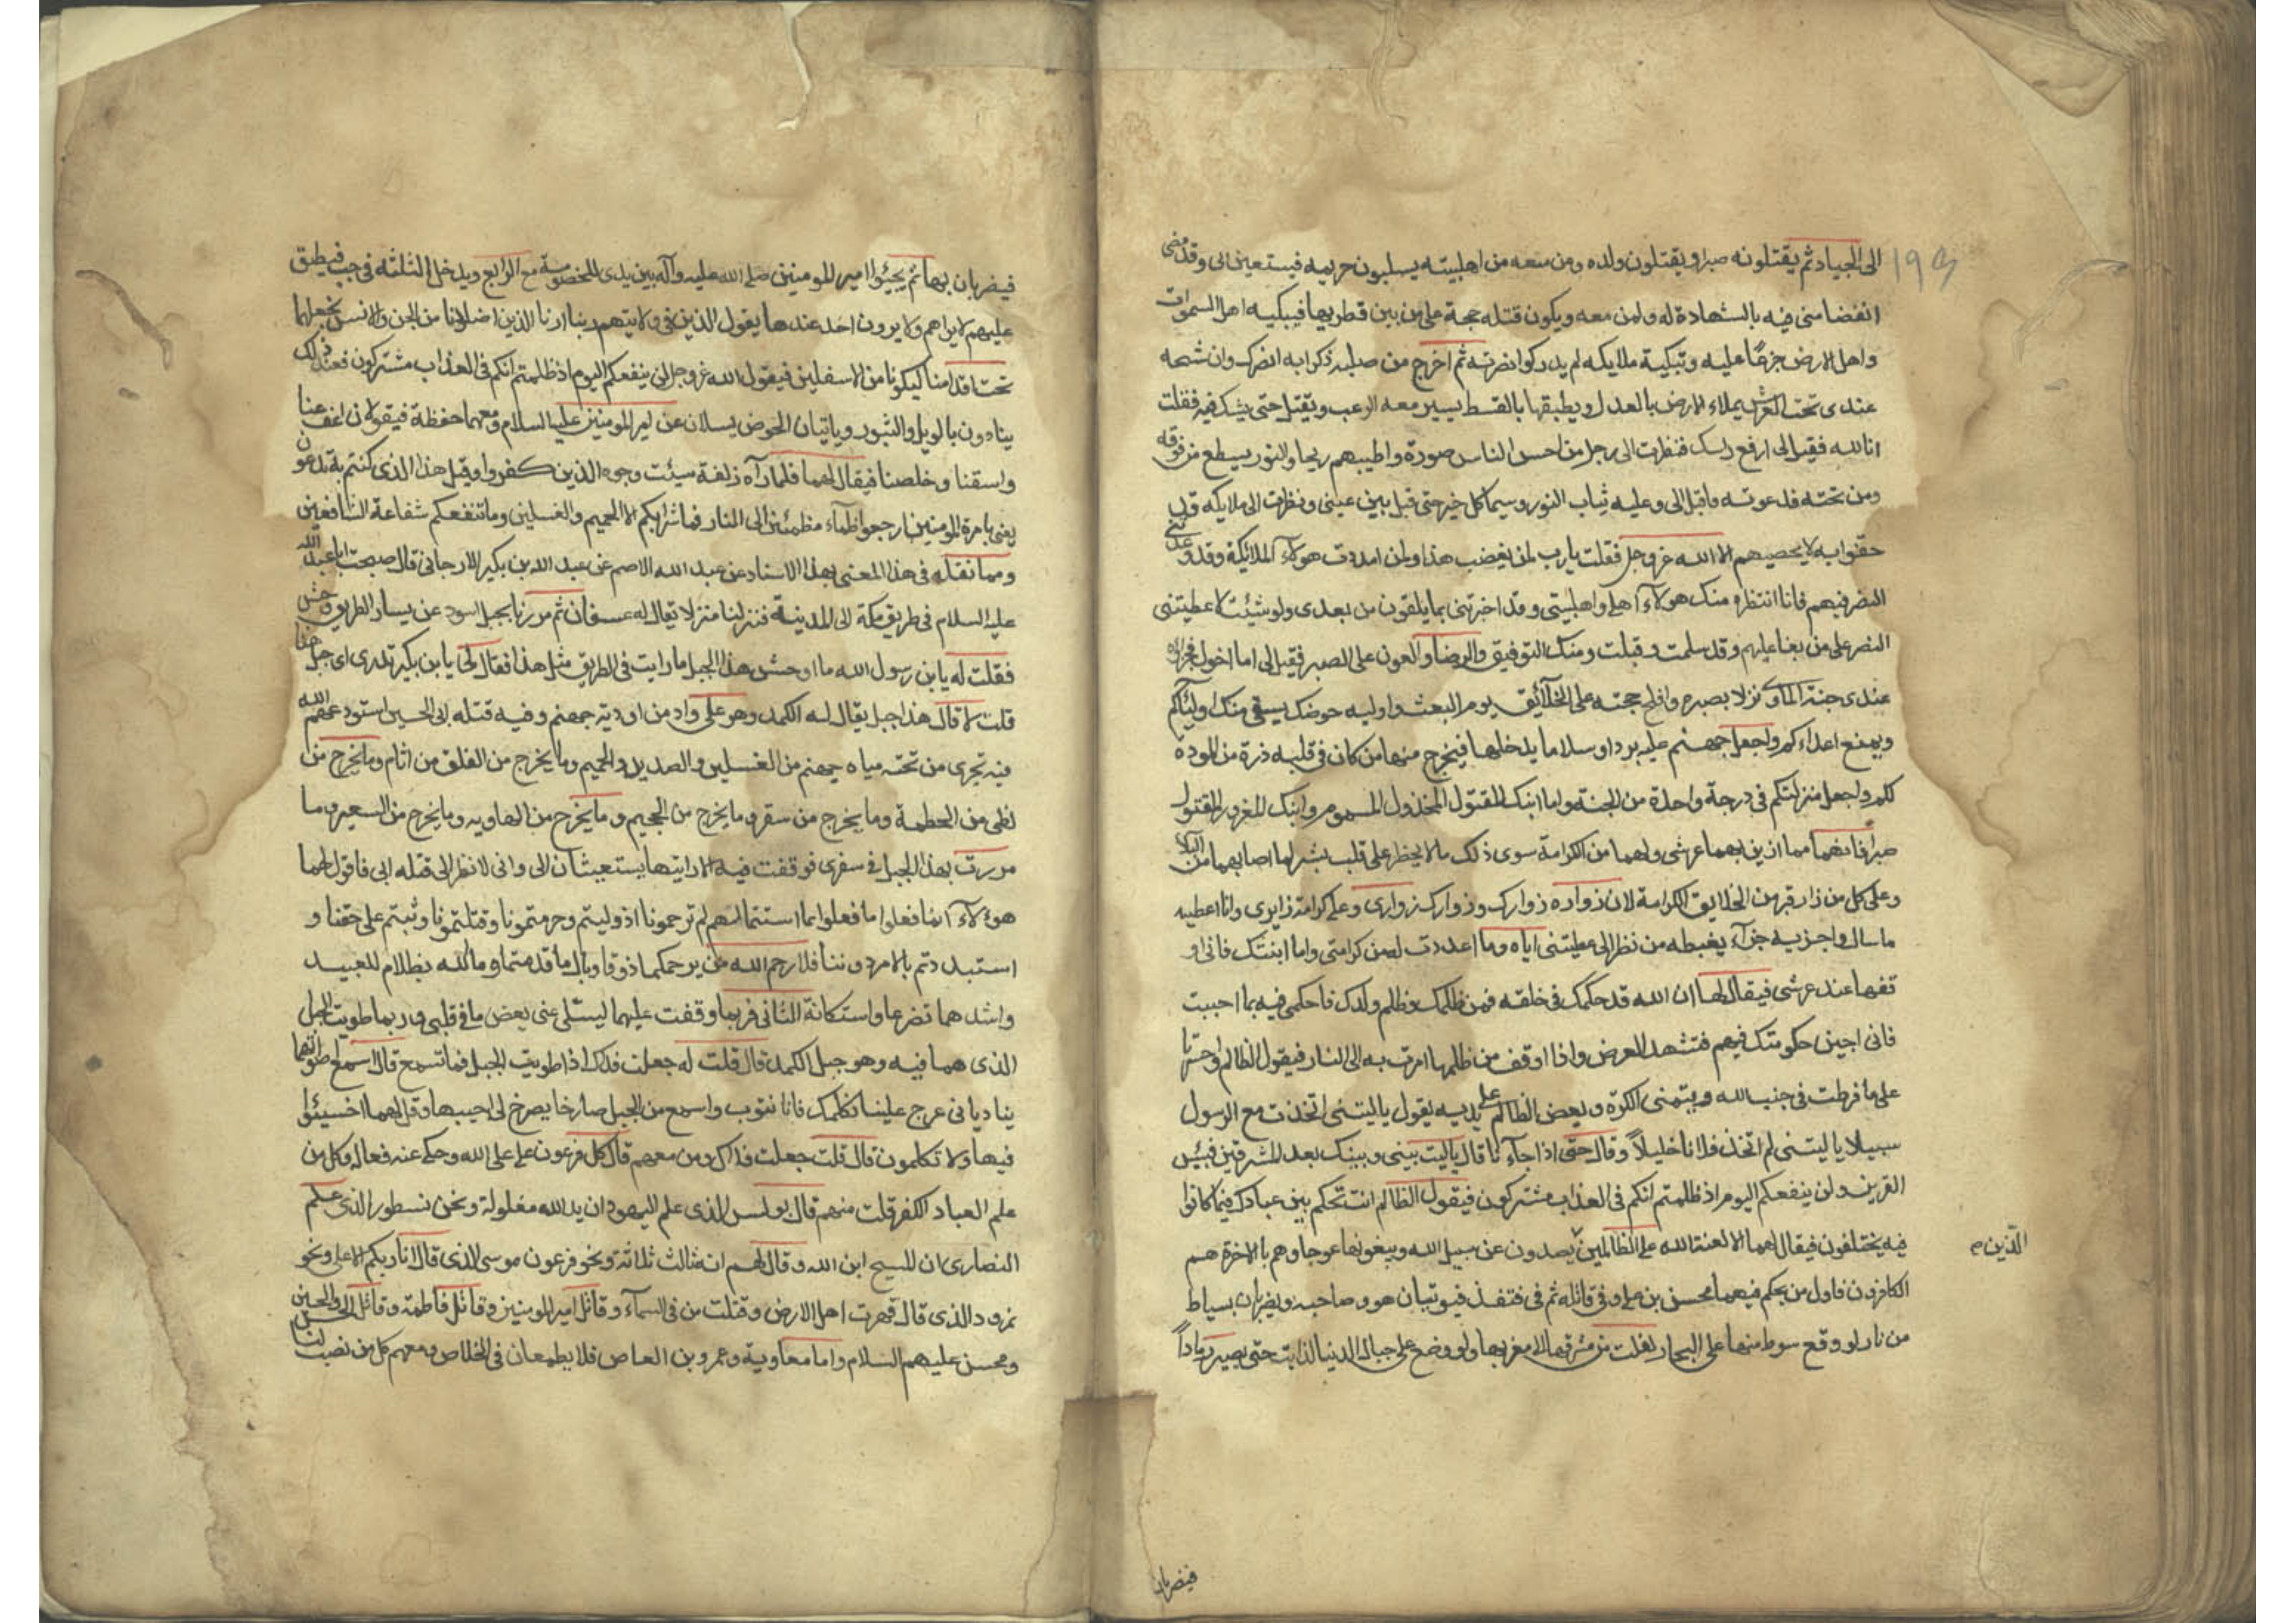 ١٩٤
الى الجهاد ثم يقتلونه صبرا ويقتلون ولده ومن معه من اهلبيته يسلبون حريمه فيستعين الى وقد مضى
القضا منى فيه بالشهادة له ولمن معه ويكون قتله حجة على من بين قطريها فيبكيه اهل السموات
واهل الارض جزعًا عليه وتبكيه ملايكه لم يدركوا نصرته ثم اخرج من صلبه ذكرا به انصرك وان شبحه
عندى تحت العرش يملاء الارض بالعدل ويطبقها بالقسط يسير معه الرعب ويقتل حتى يشك فيه فقلت
انا لله فقيل الى ارفع راسك فنظرت الى رجل من احسن الناس صورة واطيبهم ريحا والنور يسطع من فوقه
ومن تحته فدعوته فاقبل الى وعليه ثياب النور وسيما كل خير حتى قبل بين عينى ونظرت الى ملايكه قد
حفوا به لا يحصيهم الا الله عز وجل فقلت يارب لمن يغضب هذا ولمن اعددت هولآء الملائكة وقد وعدتنى
النصر فيهم فانا انتظره منك هولآء اهلى واهلبيتى وقد اخبرتنى بما يلقون من بعدى ولو شئت لاعطيتنى
النصر على من بغا عليهم وقد سلمت وقبلت ومنك التوفيق والرضا والعون على الصبر فقيل الى اما اخوك فجزاؤه
عندى جنة الماوى نزلا بصبره وافلج حجته على الخلآئق يوم البعث واوليه حوضك يسقى منه اوليآئكم
ويمنع اعداءكم واجعل جهنم عليه بردا وسلاما يدخلها فيخرج منها من كان فى قلبه ذرة من المودة
لكم واجعل منزلتكم فى درجة واحدة من الجنة واما ابنك المقتول المخذول المسموم وابنك المغرور المقتول
صبرا فانهما مما ازين بهما عرشى ولهما من الكرامة سوى ذلك مالا يخطر على قلب بشر لما اصابهما من البلاء
وعلى كل من زار قبره من الخلايق الكرامة لان زواره زوارك وزوارك زوارى وعلى كرامة زايرى وانا اعطيه
ما سال واجزيه جزآء يغبطه من نظر الى عطيتى اياه وما اعددت له من كرامتى واما ابنتك فانى او
قفها عند عرشى فيقال لها ان الله قد حكمك فى خلقه فمن ظلمك وظلم ولدك فاحكمى فيه بما احببت
فانى اجيز حكومتك فيهم فتشهد العرض واذا اوقف من ظلمها امرت به الى النار فيقول الظالم واحسرتا
على ما فرطت فى جنب الله ويتمنى الكرة ويعض الظالم على يديه يقول ياليتنى اتخذت مع الرسول
سبيلا ياليتنى لم اتخذ فلانا خليلاً وقال حتى اذا جآءنا قال ياليت بينى وبينك بعد المشرقين فبئس
القرين ولن ينفعكم اليوم اذ ظلمتم انكم فى العذاب مشتركون فيقول الظالم انت تحكم بين عبادك فيما كانوا
فيه يختلفون فيقال لهما الا لعنة الله على الظالمين يصدون عن سبيل الله ويبغونها عوجا وهم بالاخرة هم
الّذين
الكافرون فاول من يحكم فيهما محسن بن على وفى قاتله ثم فى قنفذ فيوتيان هو وصاحبه ويضربان بسياط
من نار لو وقع سوط منها على البحار لغلت من مشرقها الى مغربها ولو وضع على جبال الدنيا لذابت حتى يصير رماداً
فيضربان
فيضربان بها ثم يجيئوا امير المومنين صلى الله عليه وآله بين يدى للخصومة مع الرابع ويدخل الثلثه فى جب فيطبق
عليهم لا يراهم ولا يرون احد عندها يقول الذين فى ولايتهم ربنا ارنا الذين اضلانا من الجن والانس نجعلهما
تحت اقدامنا ليكونا من الاسفلين فيقول الله عز وجل لن ينفعكم اليوم اذ ظلمتم انكم فى العذاب مشتركون فعند ذلك
ينادون بالويل والثبور وياتيان الحوض يسلان عن امير المومنين عليه السلام ومعهما حفظة فيقولان اعف عنا
واسقنا وخلصنا فيقال لهما فلما رآه زلفة سيئت وجوه الذين كفروا وقيل هذا الذى كنتم به تدعون
يعنى بامرة المومنين ارجعوا ظمآء مظمئين الى النار فما شرابكم الا الحميم والغسلين وما تنفعكم شفاعة الشافعين
ومما نقله فى هذا المعنى بهذا الاسناد عن عبد الله الاصم عن عبد الله بن بكير الارجانى قال صحبت ابا عبد الله
عليه السلام فى طريق مكة الى المدينة فنزلنا منزلا يقال له عسفان ثم مررنا بجبل اسود عن يسار الطريق وحش
فقلت له يا بن رسول الله ما اوحش هذا الجبل ما رايت فى الطريق مثل هذا فقال لى يا بن بكير تدرى اى جبل هذا
قلت لا قال هذا جبل يقال له الكمد وهو على واد من اودية جهنم وفيه قتله ابى الحسين استودعهم الله
فيه تجرى من تحته مياه جهنم من الغسلين والصديد والحميم وما يخرج من الفلق من اثام وما يخرج من
لظى من الحطمة وما يخرج من سقر وما يخرج من الجحيم وما يخرج من الهاويه وما يخرج من السعير وما
مررت بهذا الجبل فى سفرى فوقفت فيه الا رايتهما يستغيثان الى وانى لانظر الى قتله ابى فاقول لهما
هؤلآء انما فعلوا ما فعلوا بما استنما لهم لم ترحمونا اذ وليتم وحرمتمونا وقتلتمونا وثبتم على حقنا و
استبددتم بالامر دوننا فلا رحم الله من يرحمكما ذوقا وبال ما قدمتما وما الله بظلام للعبيد
واشدهما تضرعا واستكانة الثانى فربما وقفت عليهما ليتسلى عنى بعض ما فى قلبى وربما طويت الجبل
الذى هما فيه وهو جبل الكمد قال قلت له جعلت فداك اذا طويت الجبل فما تسمع قال اسمع اصواتهما
يناديانى عرج علينا نكلمك فانا نتوب واسمع من الجبل صارخا يصرخ لى اجيبهما وقل لهما اخسيئوا
فيها ولا تكلمون قال قلت جعلت فداك ومن معهم قال كل فرعون على على الله وحكى عنه فعاله وكل من
علم العباد الكفر قلت منهم قال بولس الذى علم اليهود ان يد الله مغلولة ونحن نسطور الذى علم
النصارى ان المسيح ابن الله وقال لهم انه ثالث ثلاثة ونحو فرعون موسى الذى قال انا ربكم الاعلى ونحو
نمرود الذى قال قهرت اهل الارض وقتلت من فى السمآء وقاتل امير المومنين وقاتل فاطمة وقاتل الحسن والحسين
ومحسن عليهم السلام واما معاوية وعمرو بن العاص فلا يطمعان فى الخلاص ومعهم كل من نصب لنا